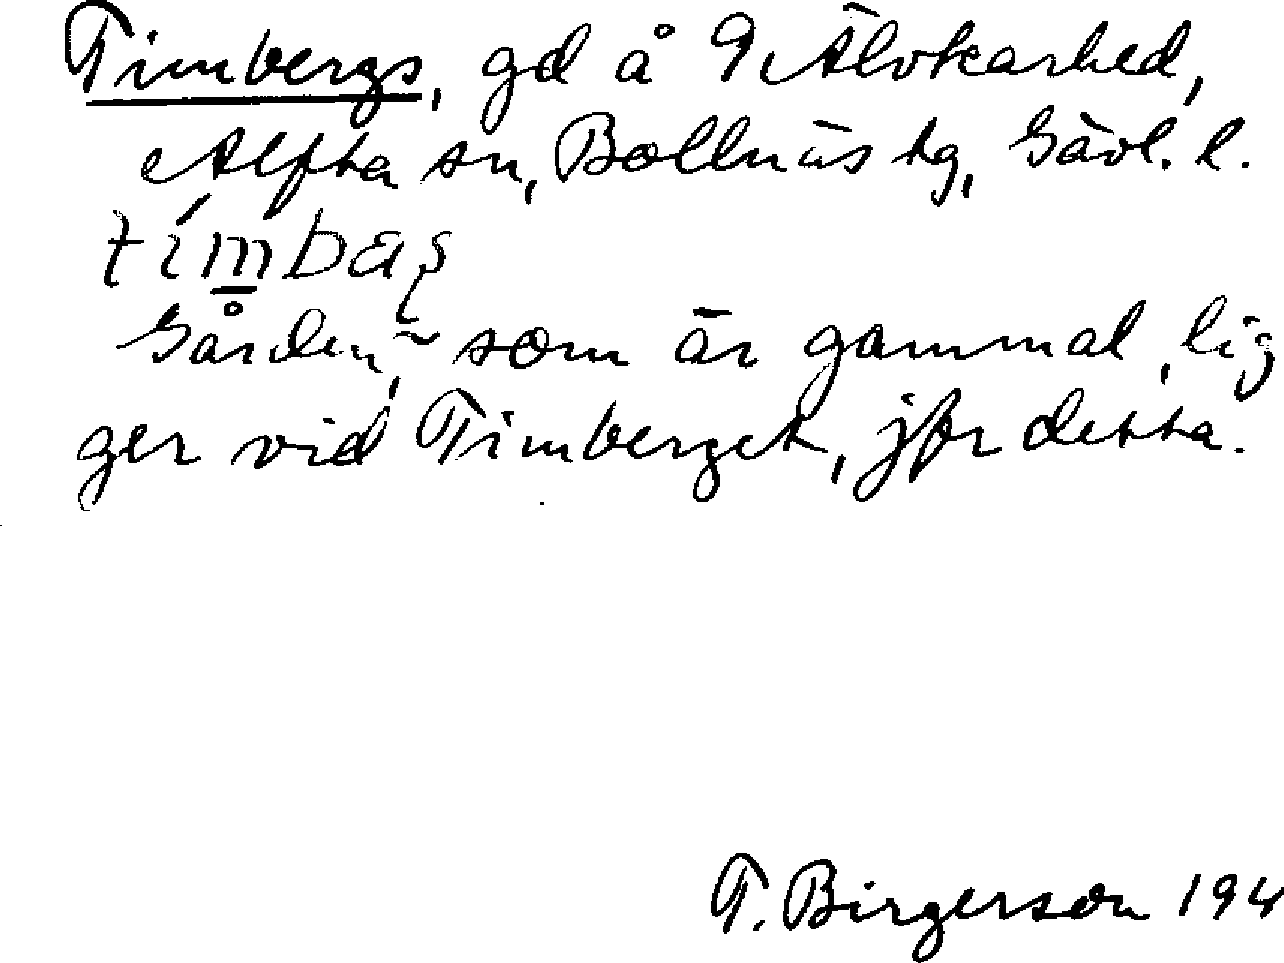 Timbergs, gd å 9 Älvkarhed,
Alfta sn, Bollnäs tg, Gävl. l.
Gården, som är gammal, lig
ger vid Timberget, jfr detta.
T. Birgerson 194